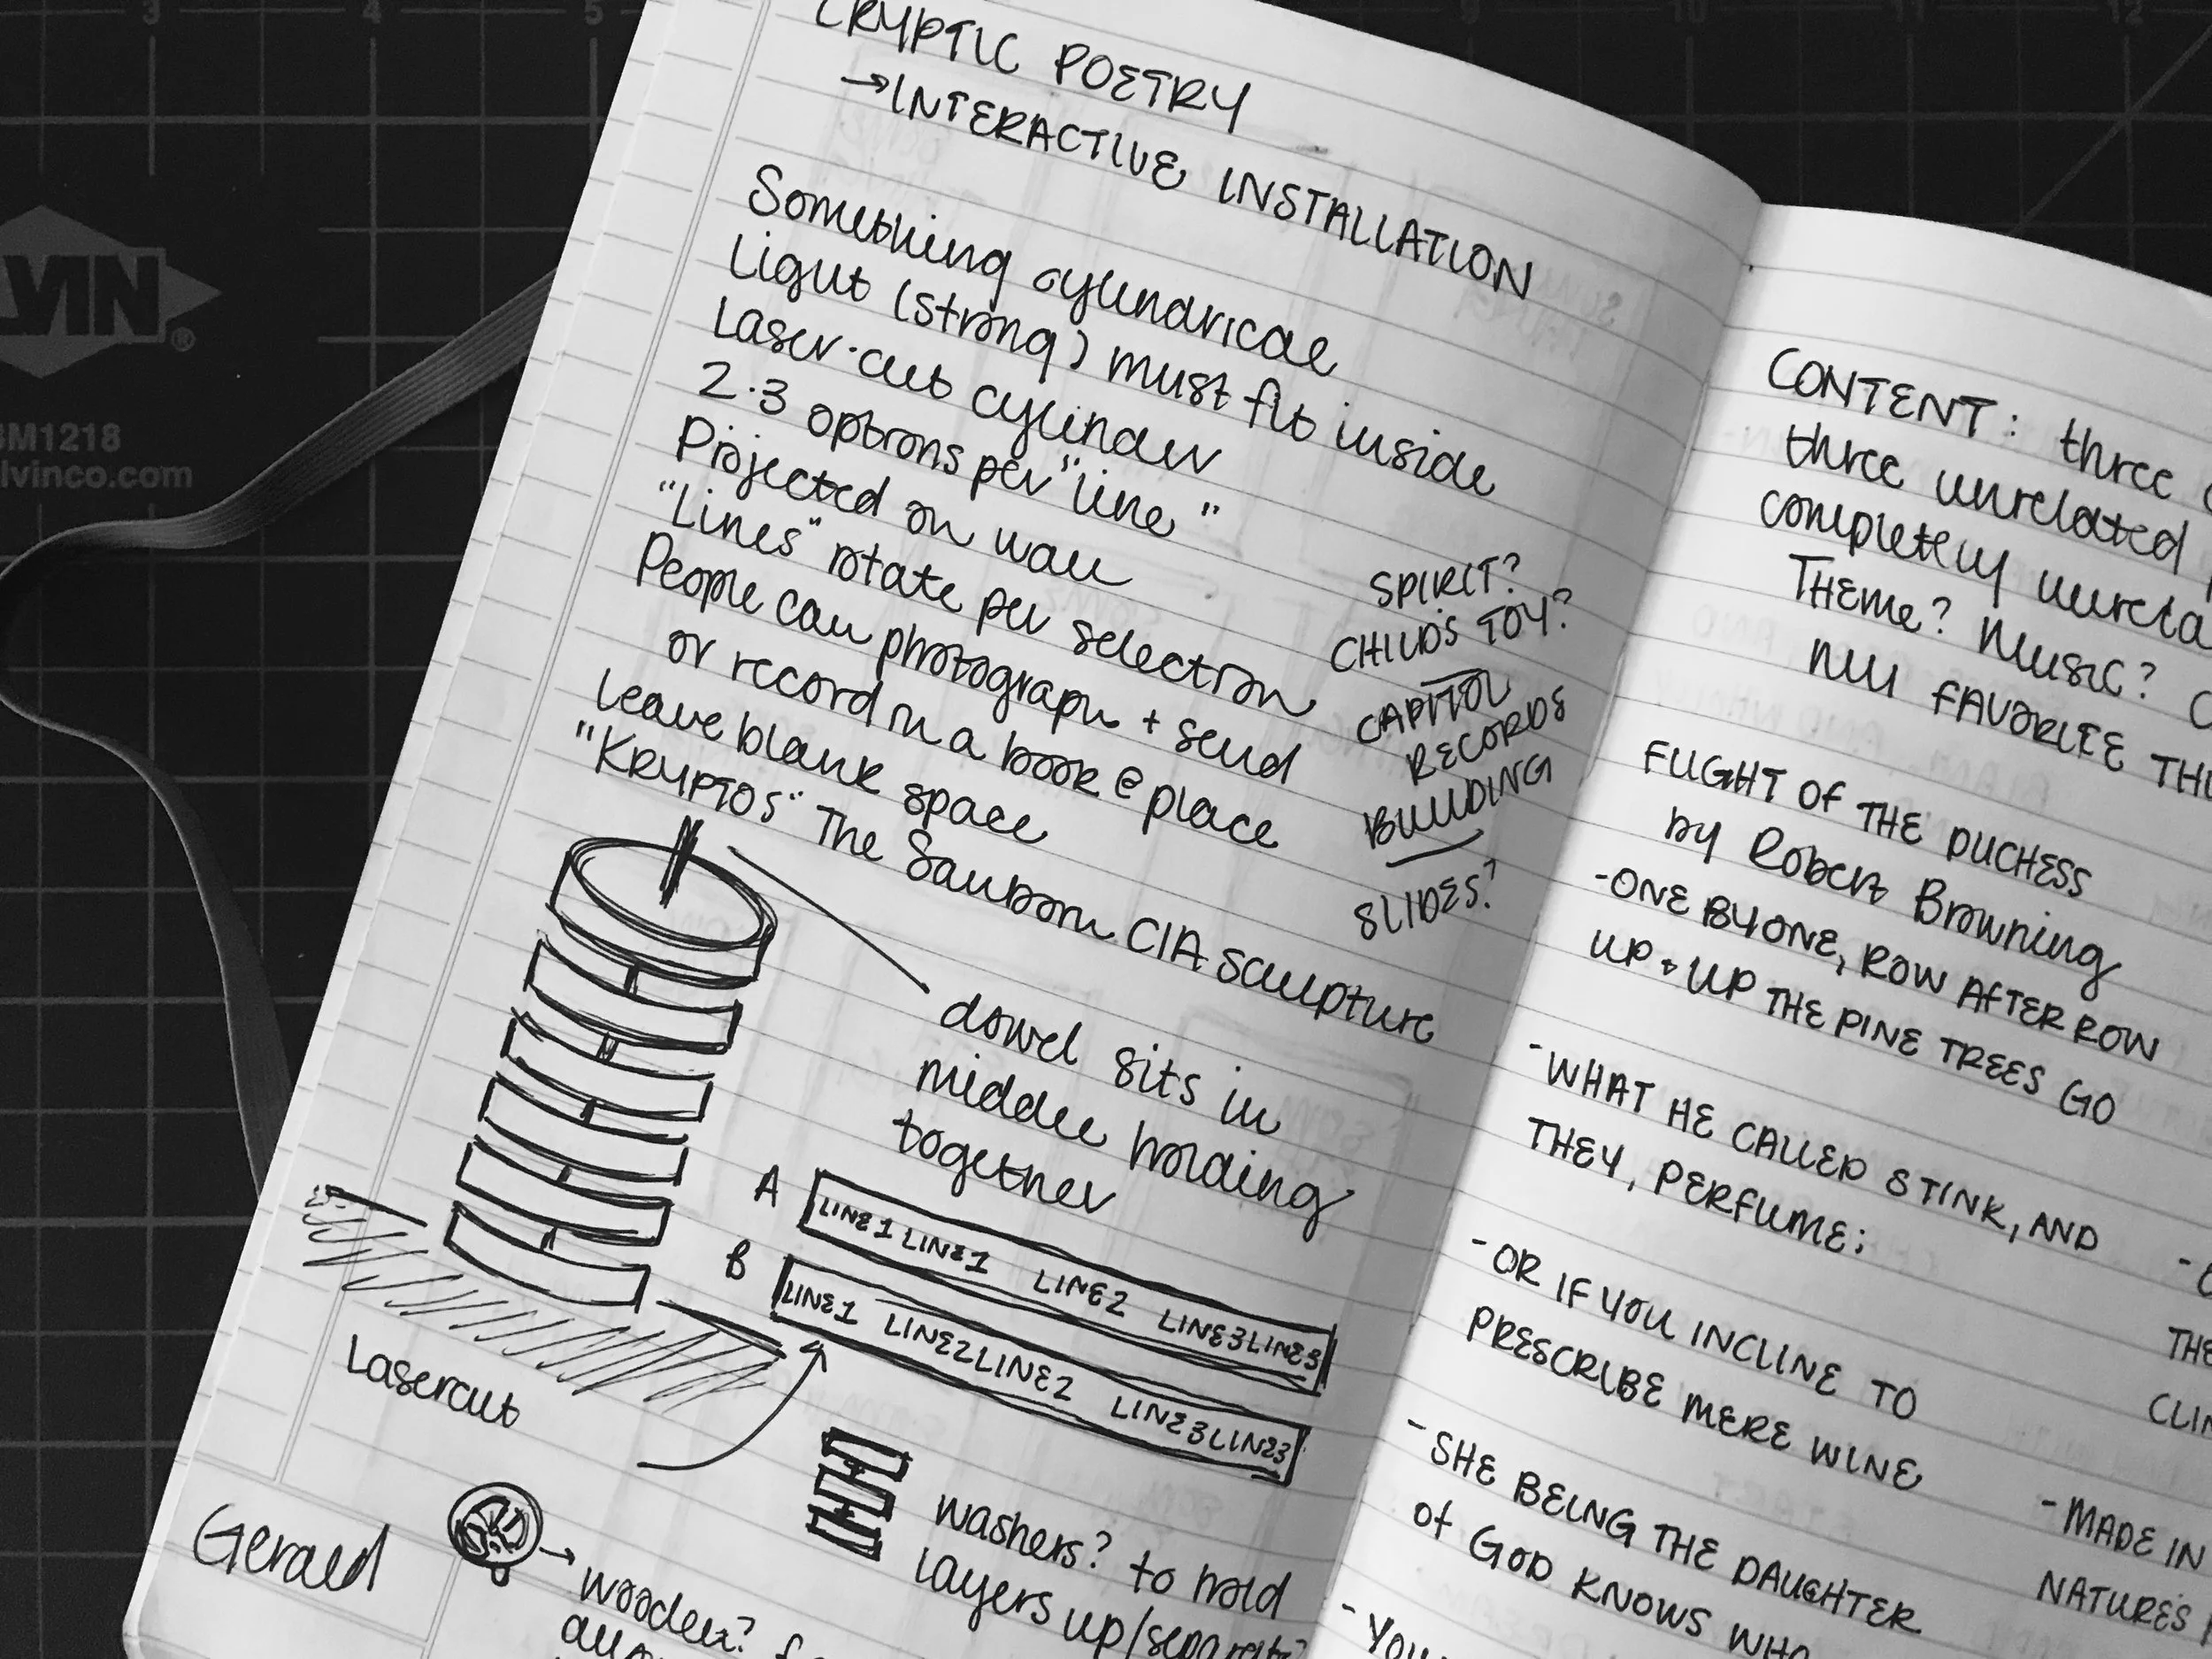 3
4
5
9
10
11
12
VIN®
BM1218
lvinco.com
CRYPTIC POETRY
→INTERACTIVE INSTALLATION
Something cylindrical
Light (strong) must fit inside
Laser-cut cylinder
2-3 options per "line"
Projected on wall
"Lines" rotate per selection
People can photograph + send
or record in a book @ place
leave blank space
"KRYPTOS" The Sanborn CIA sculpture
SPIRIT?
CHILD'S TOY?
CAPITOL
RECORDS
BUILDING
SLIDES?
dowel sits in
middle holding
together
A LINE1 LINE1 LINE2 LINE3 LINE3
B LINE1 LINE2 LINE2 LINE3 LINE3
Lasercut
washers? to hold
layers up/separate?
Gerald
→ wooden?
CONTENT: three
three unrelated
completely unrela
THEME? MUSIC?
MY FAVORITE THI
FLIGHT OF THE DUCHESS
by Robert Browning
-ONE BY ONE, ROW AFTER ROW
UP + UP THE PINE TREES GO
-WHAT HE CALLED STINK, AND
THEY, PERFUME:
-OR IF YOU INCLINE TO
PRESCRIBE MERE WINE
-SHE BEING THE DAUGHTER
of GOD KNOWS WHO
-YOU
THE
CLIM
-MADE IN
NATURE'S